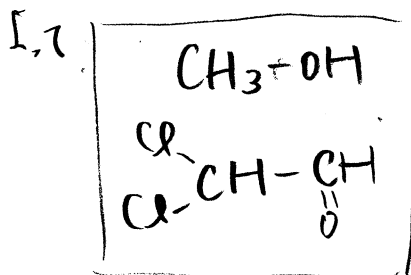 I,7
CH3-OH
Cl
Cl-CH-CH
O